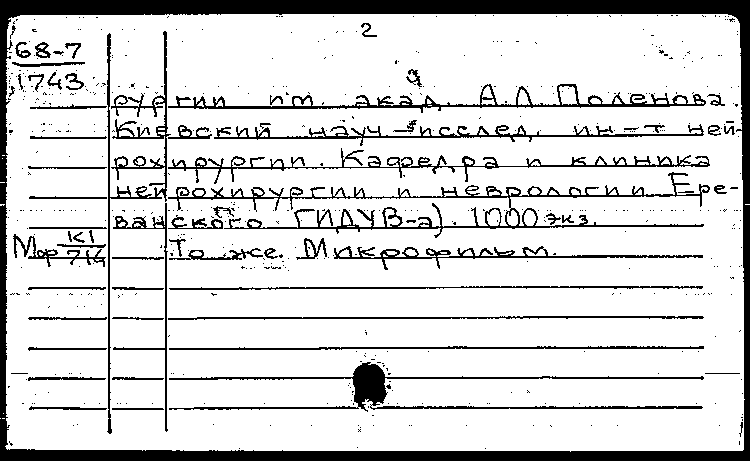 2
68-7
1743
рургии им. акад. А.Л. Поленова.
Киевский науч.-исслед. ин-т ней-
рохирургии. Кафедра и клиника
нейрохирургии и неврологии Ере-
ванского ГИДУВ-а). 1000 экз.
Мфр К1/714 То же. Микрофильм.